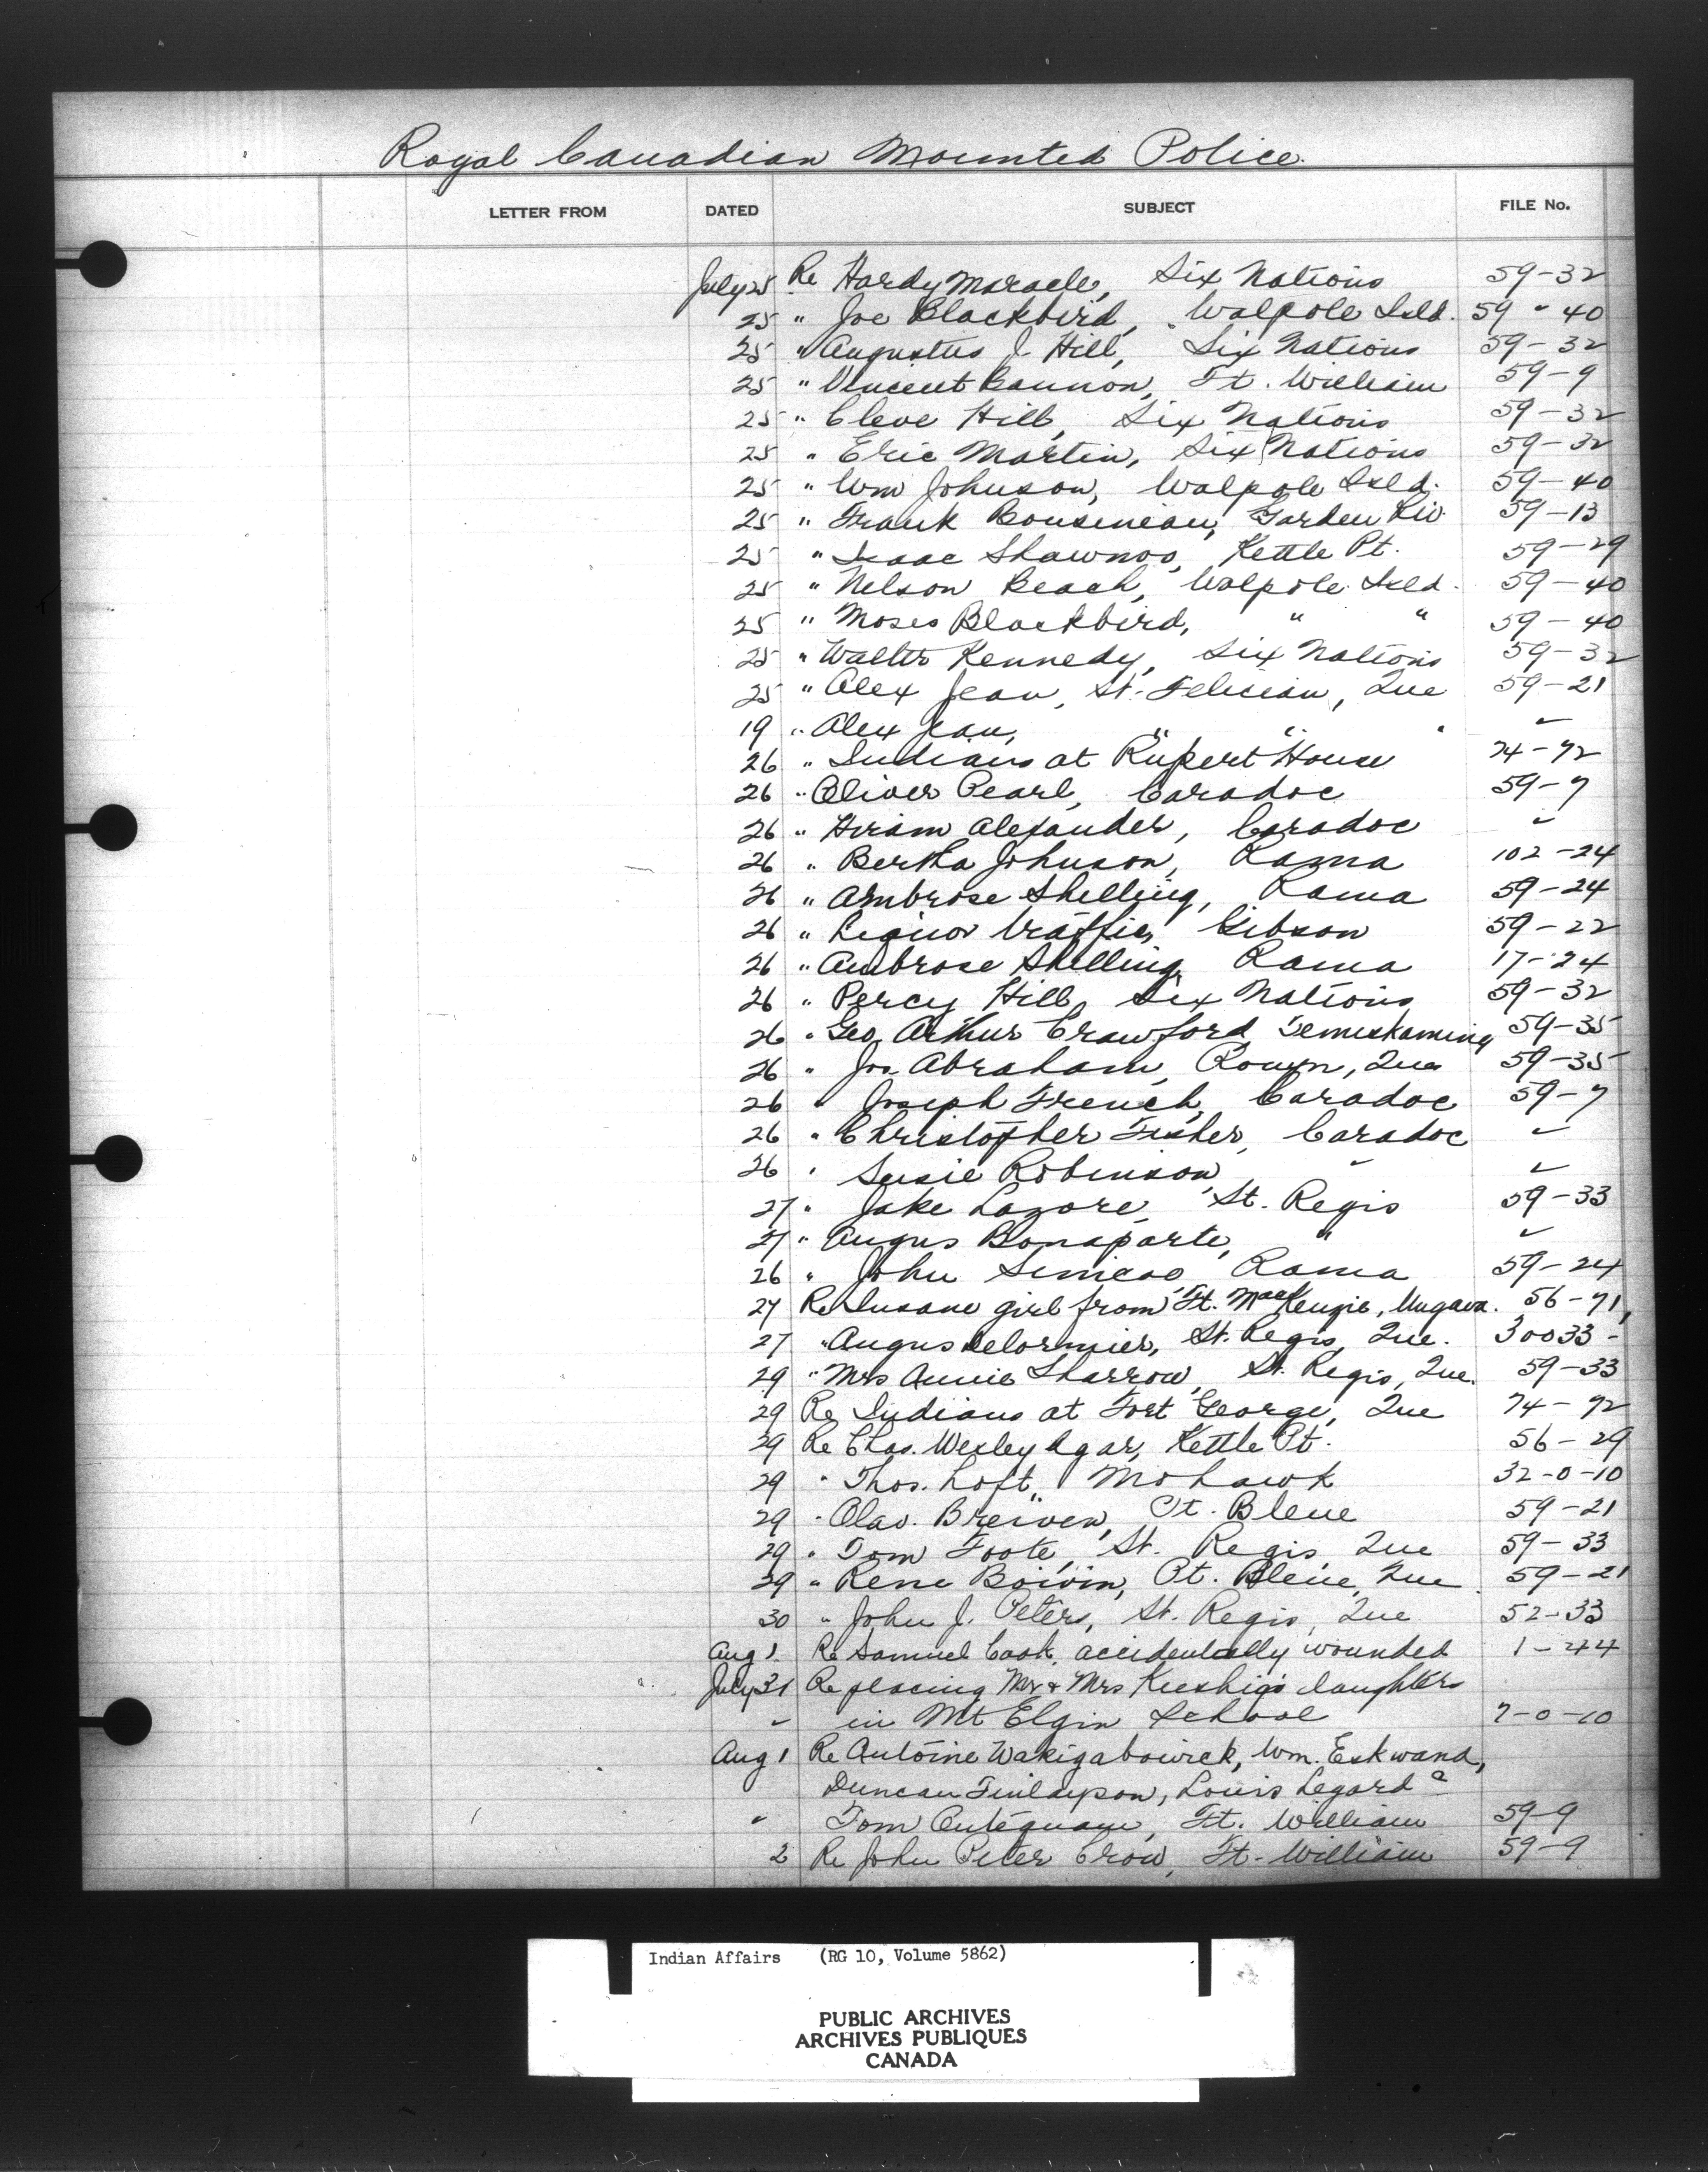 Royal Canadian Mounted Police
LETTER FROM DATED SUBJECT FILE No.
July 25 Re Hardy Maracle, Six Nations 59-32
25 " Joe Blackbird, Walpole Isld. 59-40
25 " Augustus J. Hill, Six Nations 59-32
25 " Vincent Bannon, Ft. William 59-9
25 " Cleve Hill, Six Nations 59-32
25 " Eric Martin, Six Nations 59-32
25 " Wm Johnson, Walpole Isld. 59-40
25 " Frank Bousineau, Garden Riv. 59-13
25 " Isaac Shawnoo, Kettle Pt. 59-29
25 " Nelson Beach, Walpole Isld. 59-40
25 " Moses Blackbird, " " 59-40
25 " Walter Kennedy, Six Nations 59-32
25 " Alex Jean, St. Felician, Que 59-21
19 " Alex Jean, " " "
26 " Indians at Rupert House 74-92
26 " Oliver Pearl, Caradoc 59-7
26 " Hiram Alexander, Caradoc "
26 " Bertha Johnson, Rama 102-24
26 " Ambrose Shelling, Rama 59-24
26 " Liquor traffic, Gibson 59-22
26 " Ambrose Shelling, Rama 17-24
26 " Percy Hill, Six Nations 59-32
26 " Geo. Arthur Crawford, Temiskaming 59-35
26 " Jos. Abraham, Rouyn, Que 59-35
26 " Joseph French, Caradoc 59-7
26 " Christopher Fisher, Caradoc "
26 " Susie Robinson, " "
27 " Jake Lazore, St. Regis 59-33
27 " Angus Bonaparte, " "
26 " John Simcoe, Rama 59-24
27 Re Insane girl from Ft. MacKenzie, Ungava. 56-71,
27 " Angus Delormier, St. Regis, Que. 30033-
29 " Mrs Annie Sharrow, St. Regis, Que. 59-33
29 Re Indians at Fort George, Que 74-92
29 Re Chas. Wesley Agar, Kettle Pt. 56-29
29 " Thos. Loft, Mohawk 32-0-10
29 " Olav. Breiven, Pt. Bleue 59-21
29 " Tom Foote, St. Regis, Que 59-33
29 " Rene Boivin, Pt. Bleue, Que 59-21
30 " John J. Peters, St. Regis, Que 52-33
Aug 1 Re Samuel Cook, accidentally wounded 1-44
July 31 Re placing Mr & Mrs Kieshig's daughters
" in Mt Elgin School 7-0-10
Aug 1 Re Antoine Wakigabowick, Wm. Eskwand,
Duncan Finlayson, Louis Legard &
" Tom Ft. William 59-9
2 Re John Peter Crow, Ft. William 59-9
Indian Affairs (RG 10, Volume 5862)
PUBLIC ARCHIVES
ARCHIVES PUBLIQUES
CANADA